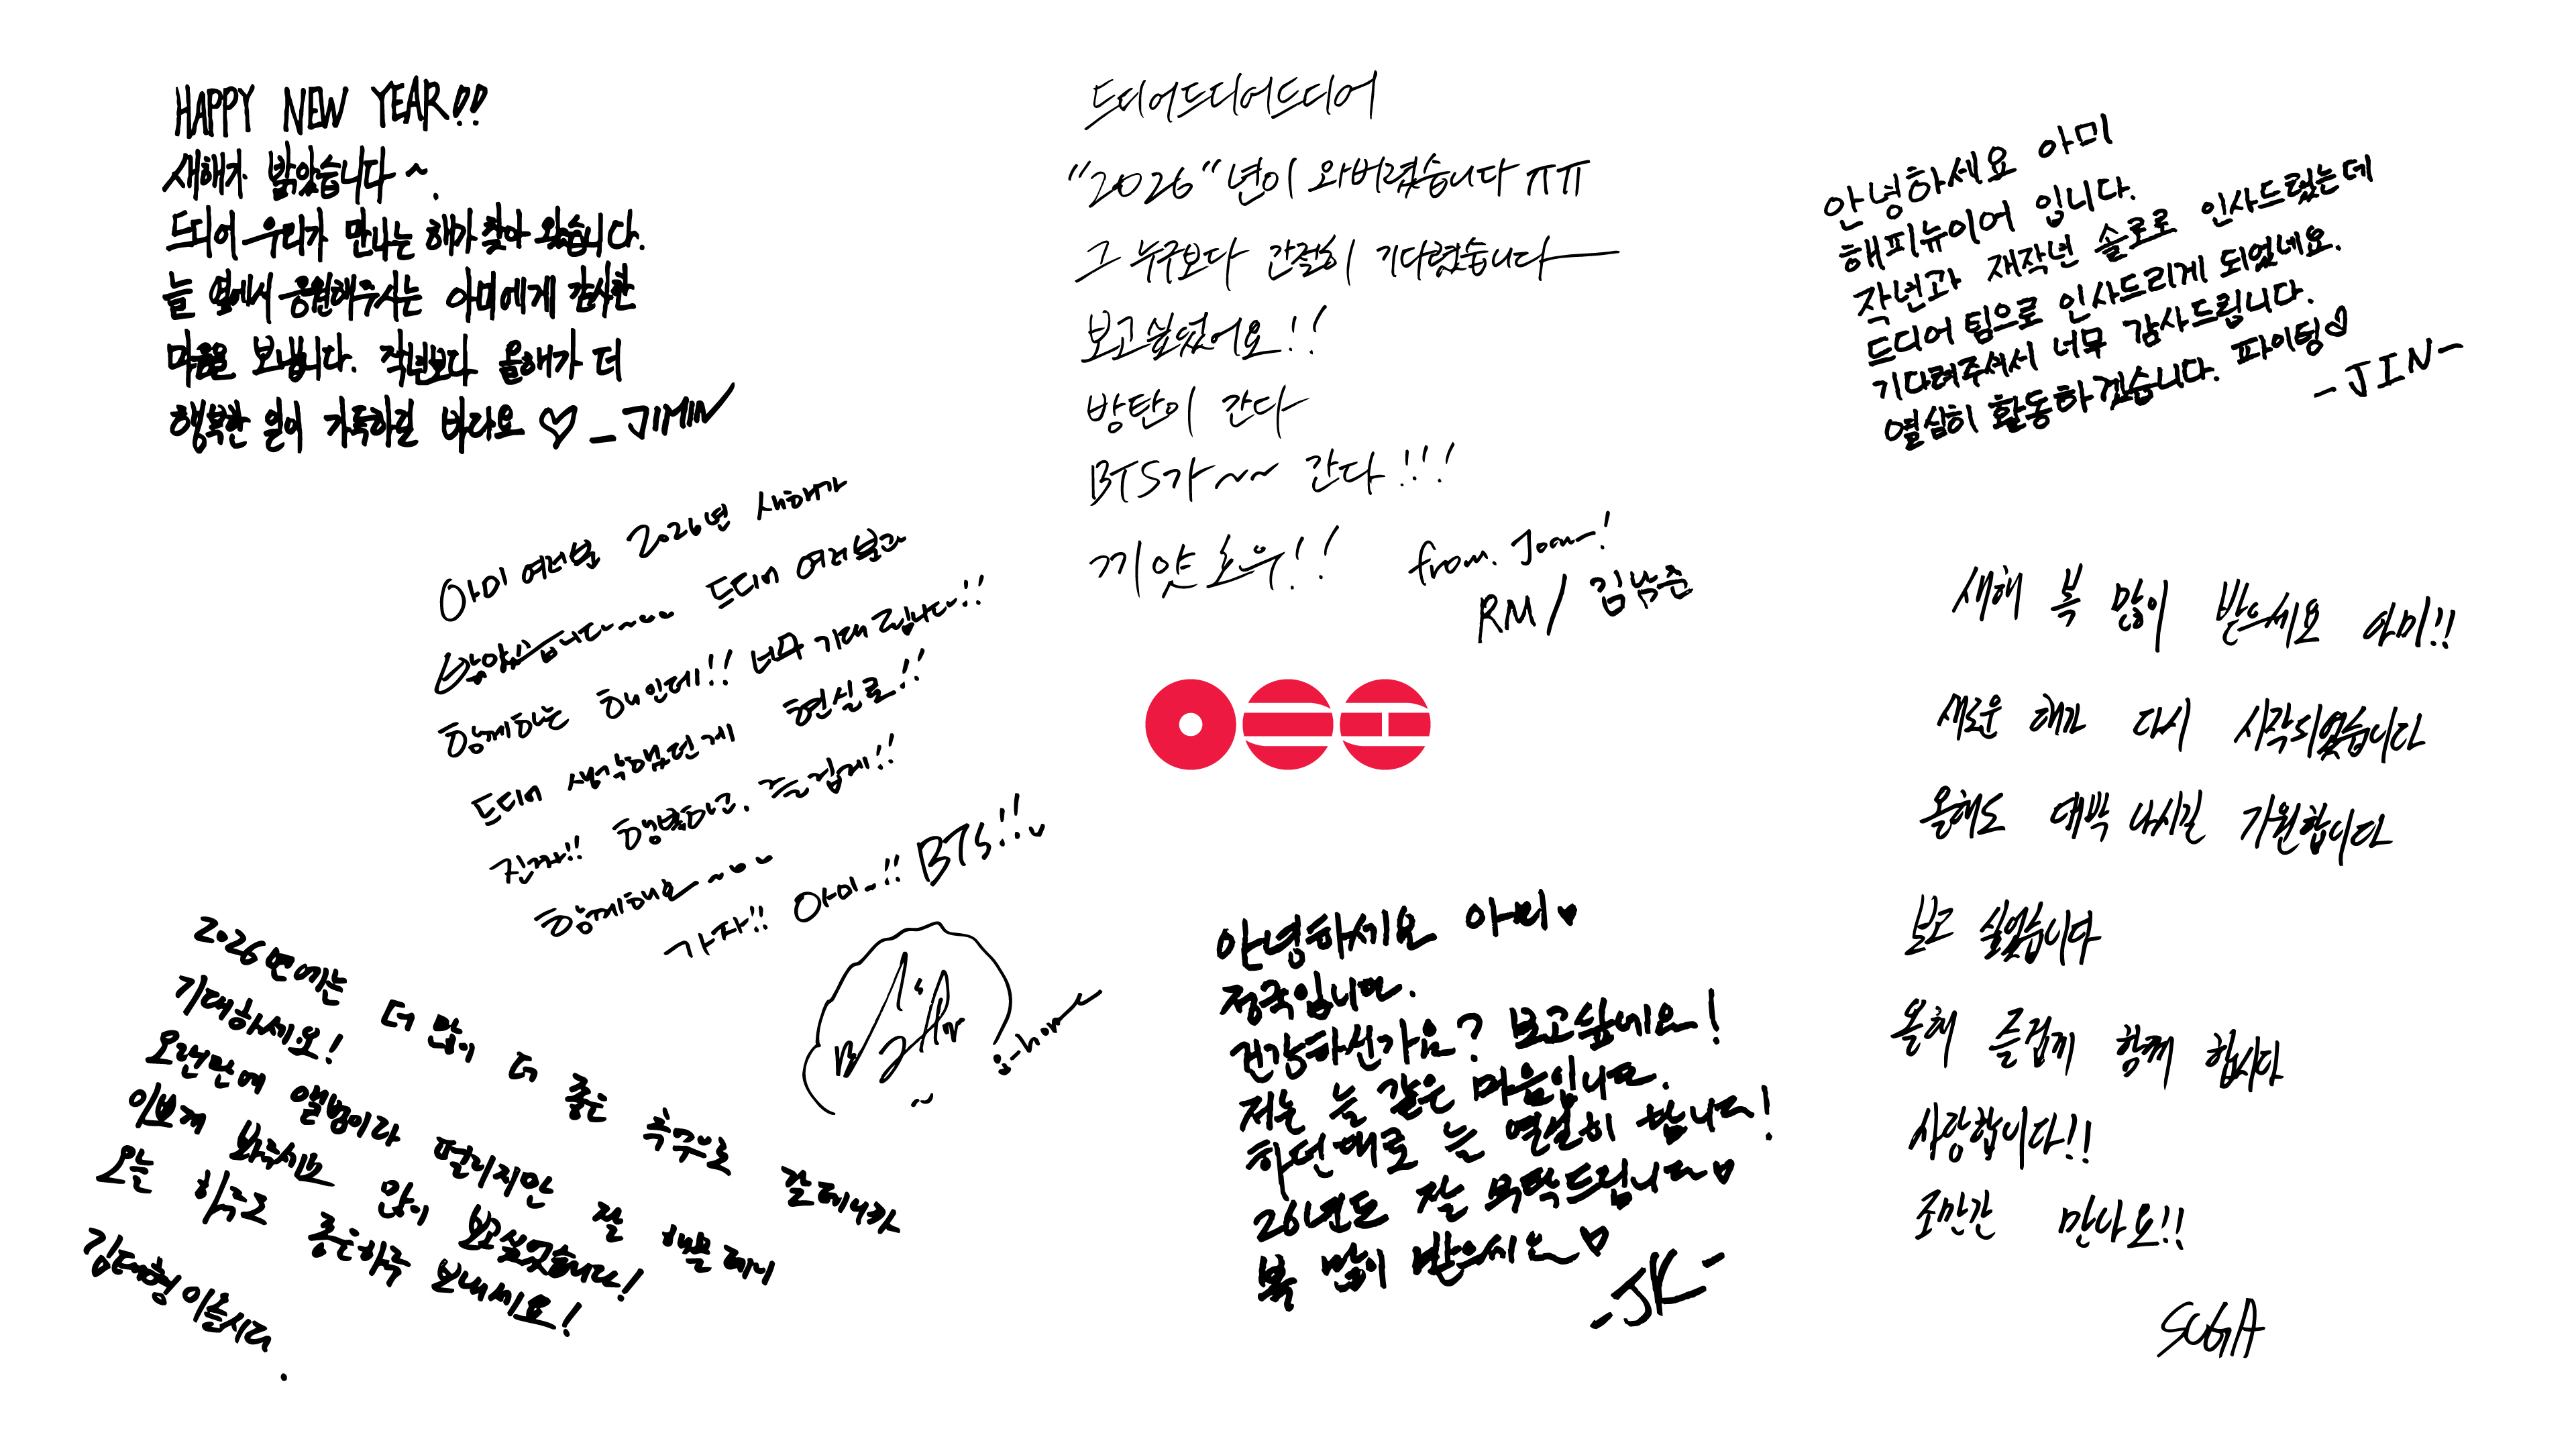 HAPPY NEW YEAR!!
새해가 밝았습니다~.
드디어 우리가 만나는 해가 찾아 왔습니다.
늘 옆에서 응원해주시는 아미에게 감사한
마음을 보냅니다. 작년보다 올해가 더
행복한 일이 가득하길 바라요 ♡ _JIMIN
드디어드디어드디어
"2026"년이 와버렸습니다 ㅠㅠ
그 누구보다 간절히 기다렸습니다
보고싶었어요!!
방탄이 간다
BTS가~~ 간다!!!
끼얏호우!!
from. Joon-!
RM / 김남준
안녕하세요 아미
해피뉴이어 입니다.
작년과 재작년 솔로로 인사드렸는데
드디어 팀으로 인사드리게 되었네요.
기다려주셔서 너무 감사드립니다.
열심히 활동하겠습니다. 파이팅♡
-JIN-
아미 여러분 2026년 새해가
밝았습니다~~~ 드디어 여러분과
함께하는 해인데!! 너무 기대됩니다!!
드디어 생각했던게 현실로!!
진짜!! 행복하고, 즐겁게!!
함께해요~~~
가자!! 아미~!! BTS!!
j-hope
새해 복 많이 받으세요 아미!!
새로운 해가 다시 시작되었습니다
올해도 대박 나시길 기원합니다
보고 싶었습니다
올해 즐겁게 함께 합시다
사랑합니다!!
조만간 만나요!!
SUGA
2026년에는 더 많이 더 좋은 추억으로 갈테니까
기대하세요!
오랜만에 앨범이라 떨리지만 잘 해볼테니
이쁘게 봐주세요 많이 보고싶었습니다!
오늘 하루도 좋은하루 보내세요!
김태형이올시다.
안녕하세요 아미♥
정국입니다.
건강하신가요? 보고싶네요!
저는 늘 같은 마음입니다.
하던대로 늘 열심히 합니다!
26년도 잘 부탁드립니다♡
복 많이 받으세요♡
-JK-